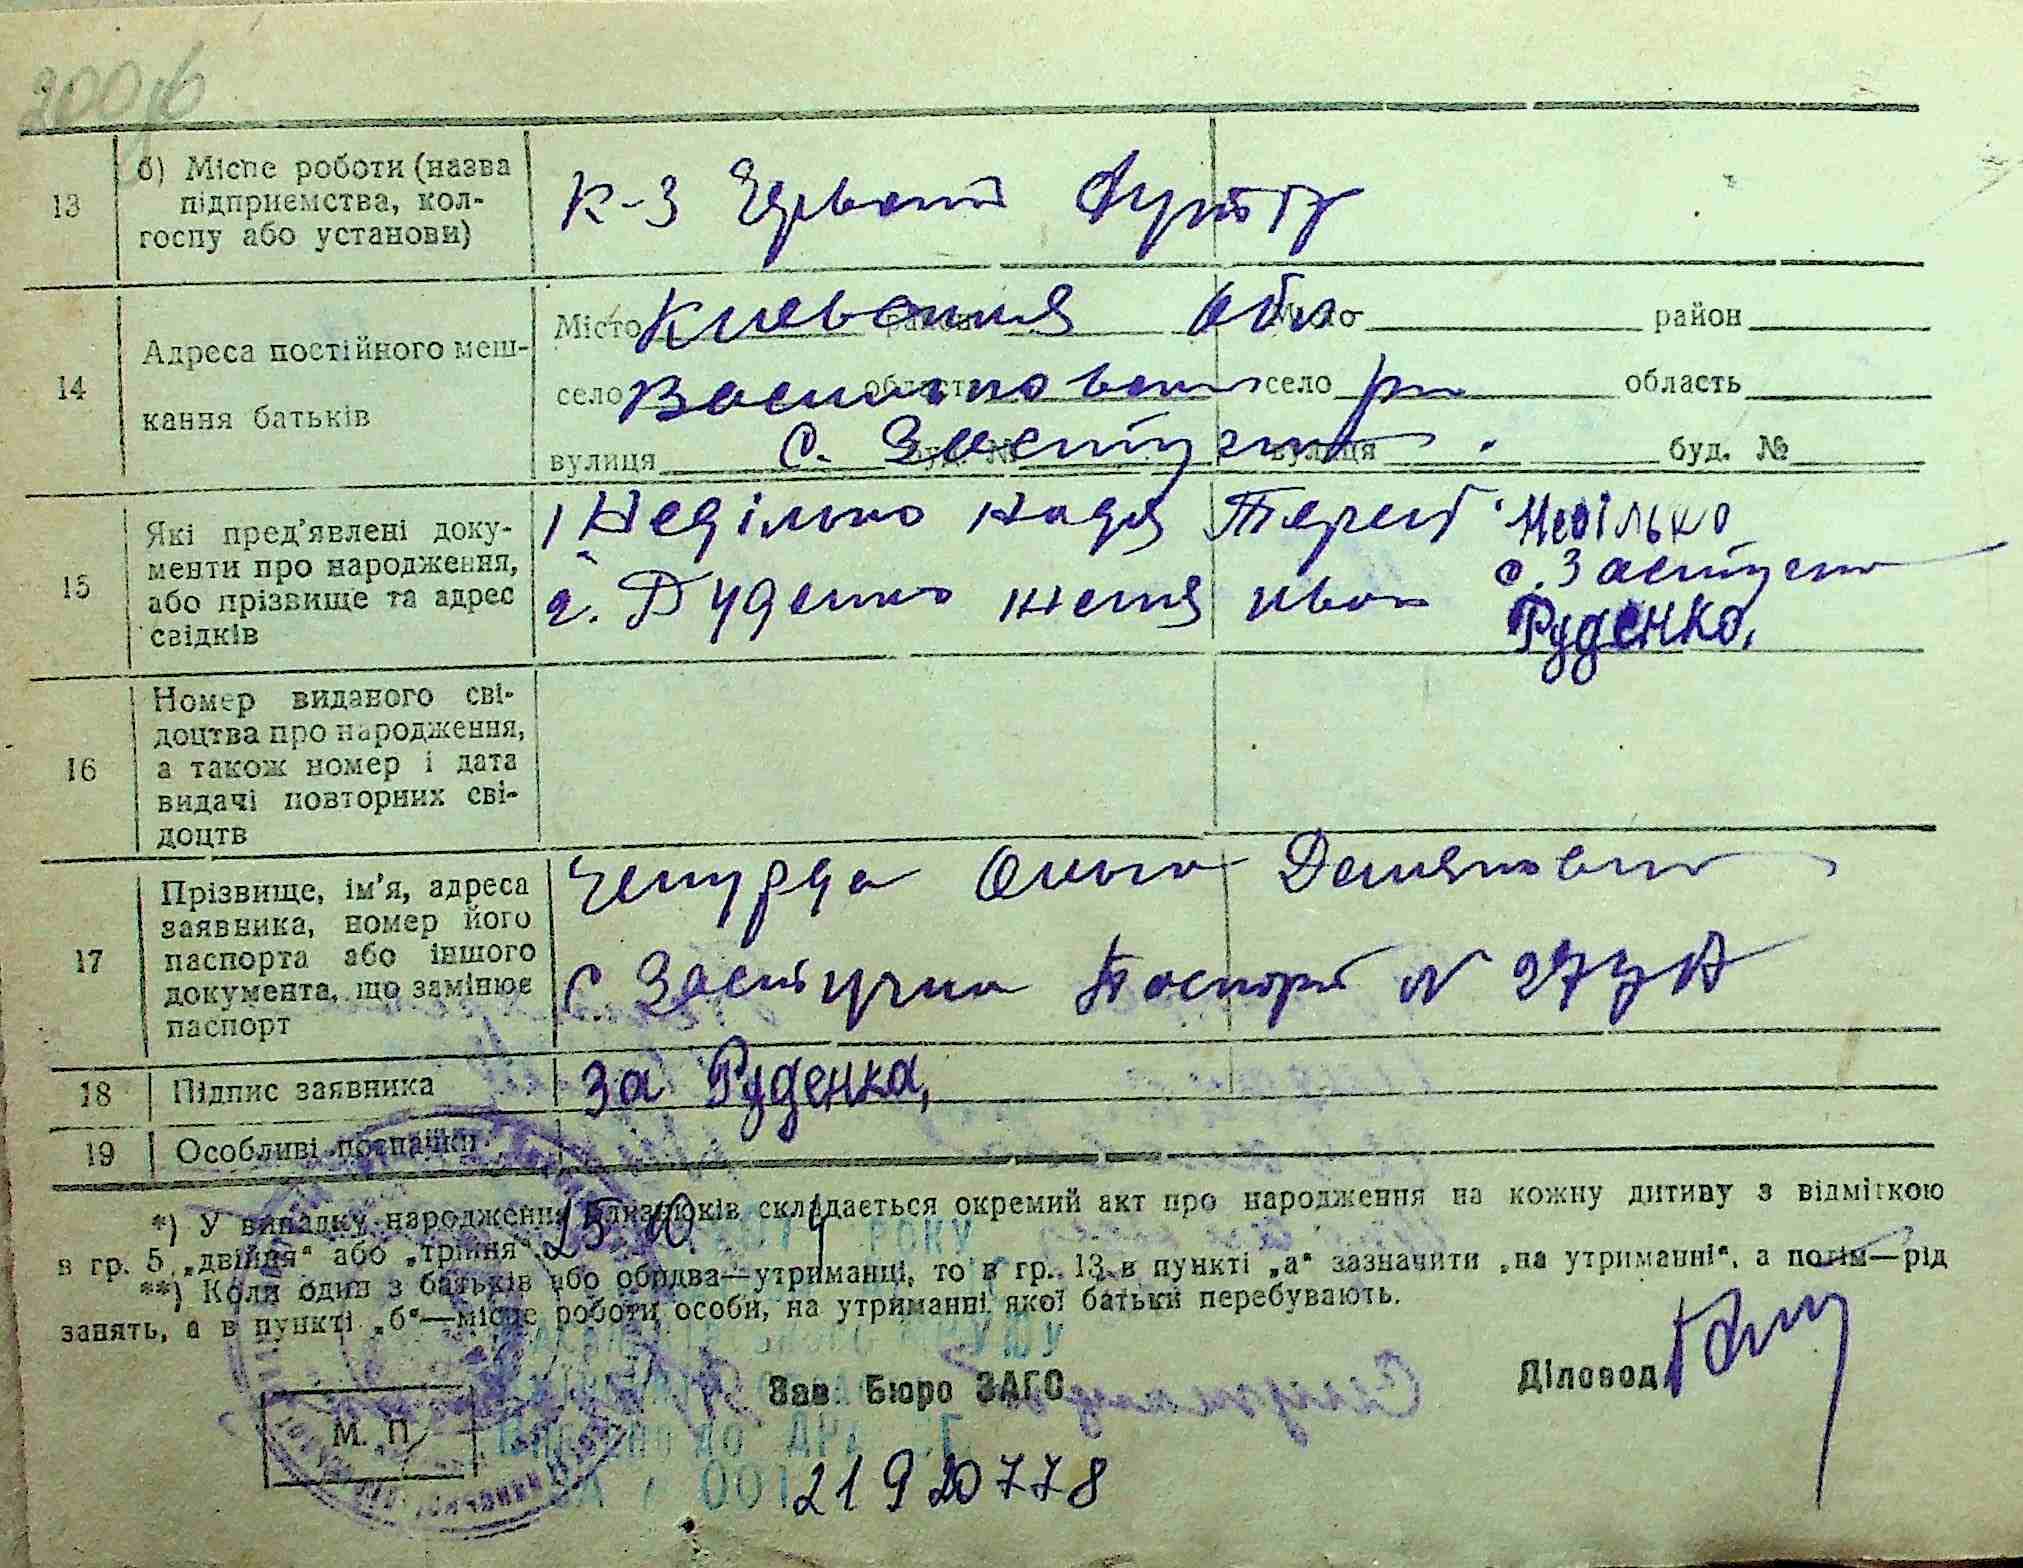 13
б) Місце роботи (назва
підприємства, кол-
госпу або установи)
К-з
14
Адреса постійного меш-
кання батьків
Місто Киевская район обл Місто район
село Васильковский область село рн область
вулиця с. Застугна буд. № вулиця буд. №
15
Які пред'явлені доку-
менти про народження,
або прізвище та адрес
свідків
1 Неділько Надя Терент Неділько
с. Застугна
2. Руденко Настя Иван
Руденко,
16
Номер виданого сві-
доцтва про народження,
а також номер і дата
видачі повторних сві-
доцтв
17
Прізвище, ім'я, адреса
заявника, номер його
паспорта або іншого
документа, що замінює
паспорт
Чепурда Ольга Демяновна
с Застугна Паспорт №
18
Підпис заявника
За Руденка,
19
Особливі позначки
*) У випадку народження близнюків складається окремий акт про народження на кожну дитину з відміткою
в гр. 5 „двійня“ або „трійня“.
РОКУ
**) Коли один з батьків або обидва—утриманці, то в гр. 13 в пункті „а“ зазначити „на утриманні“, а потім—рід
занять, а в пункті „б“—місце роботи особи, на утриманні якої батьки перебувають.
Зав. Бюро ЗАГС
Діловод
М. П.
001 21920778